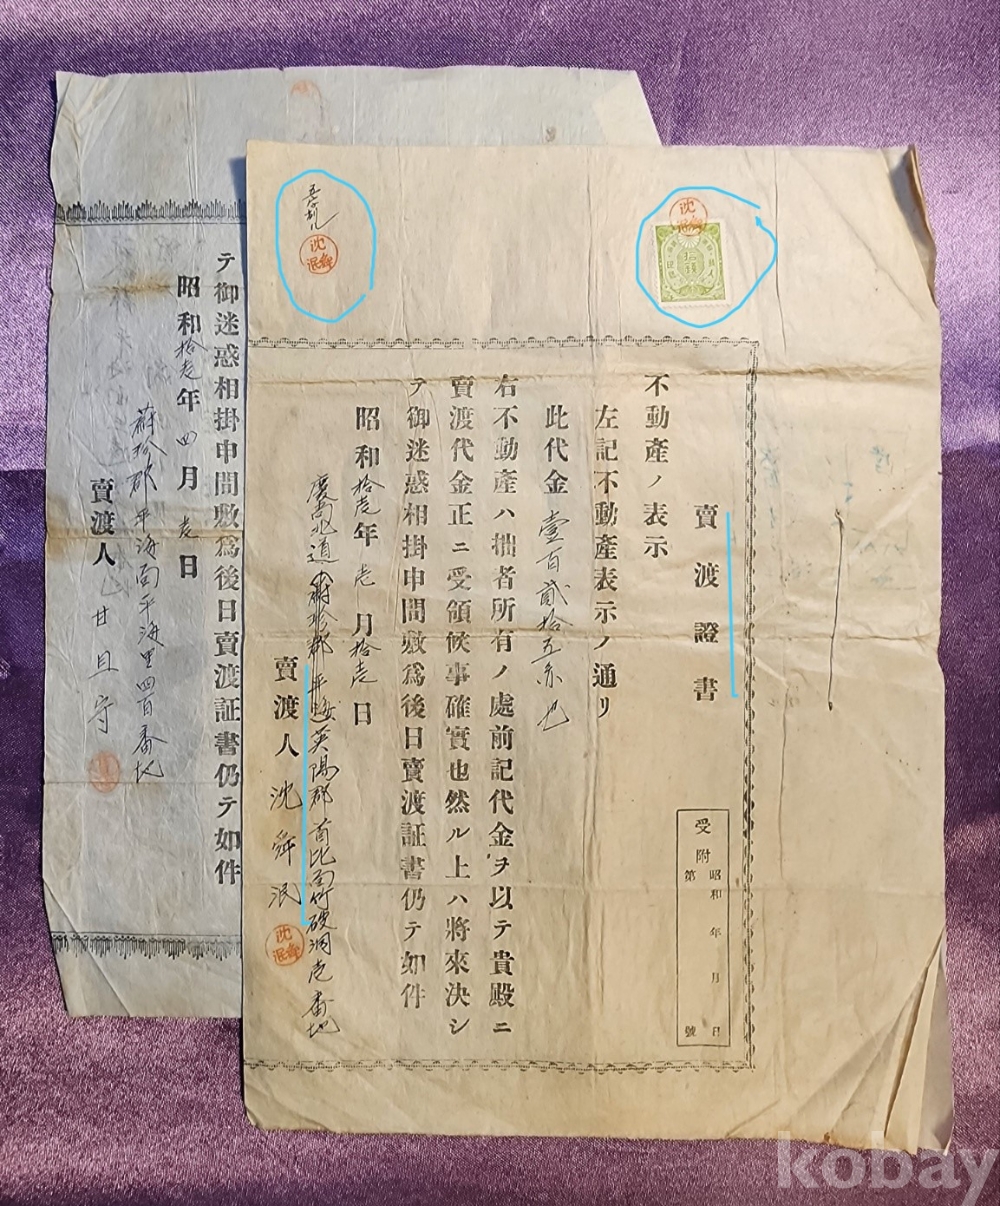 賣渡證書
受附
昭和 年 月 日
第 號
不動產ノ表示
左記不動產表示ノ通リ
此代金 壹百貳拾五 也
右不動產ハ拙者所有ノ處前記代金ヲ以テ貴殿ニ
賣渡代金正ニ受領候事確實也然ル上ハ將來決シ
テ御迷惑相掛申間敷爲後日賣渡証書仍テ如件
昭和拾壱年壱月拾壱日
慶尙北道 英陽郡首比面竹破洞壱番地
賣渡人 沈舜泯
沈舜泯
沈舜泯
沈舜泯
拾錢
テ御迷惑相掛申間敷爲後日賣渡証書仍テ如件
昭和拾壱年四月 日
蔚珍郡平海面平海里四百番地
賣渡人
kobay